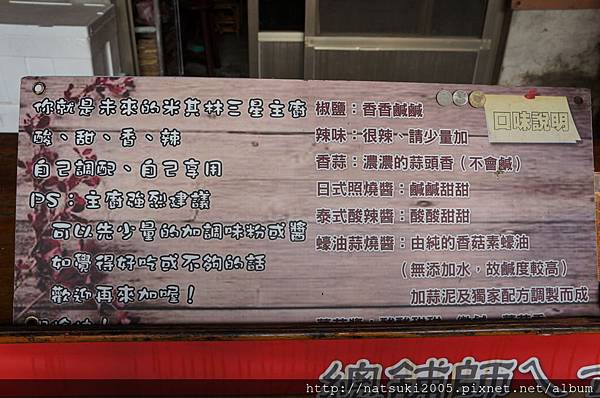 你就是未來的米其林三星主廚
酸、甜、香、辣
自己調配、自己享用
PS：主廚強烈建議
可以先少量的加調味粉或醬
如覺得好吃或不夠的話
歡迎再來加喔！
口味說明
椒鹽：香香鹹鹹
辣味：很辣、請少量加
香蒜：濃濃的蒜頭香（不會鹹）
日式照燒醬：鹹鹹甜甜
泰式酸辣醬：酸酸甜甜
蠔油蒜燒醬：由純的香菇素蠔油
（無添加水，故鹹度較高）
加蒜泥及獨家配方調製而成
總鋪師
http://natsuki2005.pixnet.net/album